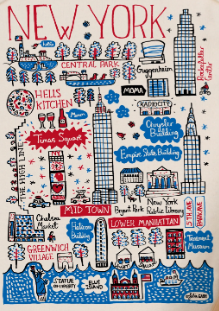 NEW YORK
CENTRAL PARK
Guggenheim
Rockefeller Center
HELLS
KITCHEN
MOMA
RADIO CITY
Macy's
Chrysler
Building
Times Square
THE HIGH LINE
Empire State Building
MID TOWN
Bryant Park
New York
Public Library
5TH AVE
Chelsea
Market
Flatiron
Building
LOWER MANHATTAN
Tenement
Museum
GREENWICH
VILLAGE
STATUE
OF LIBERTY
ELLIS
ISLAND